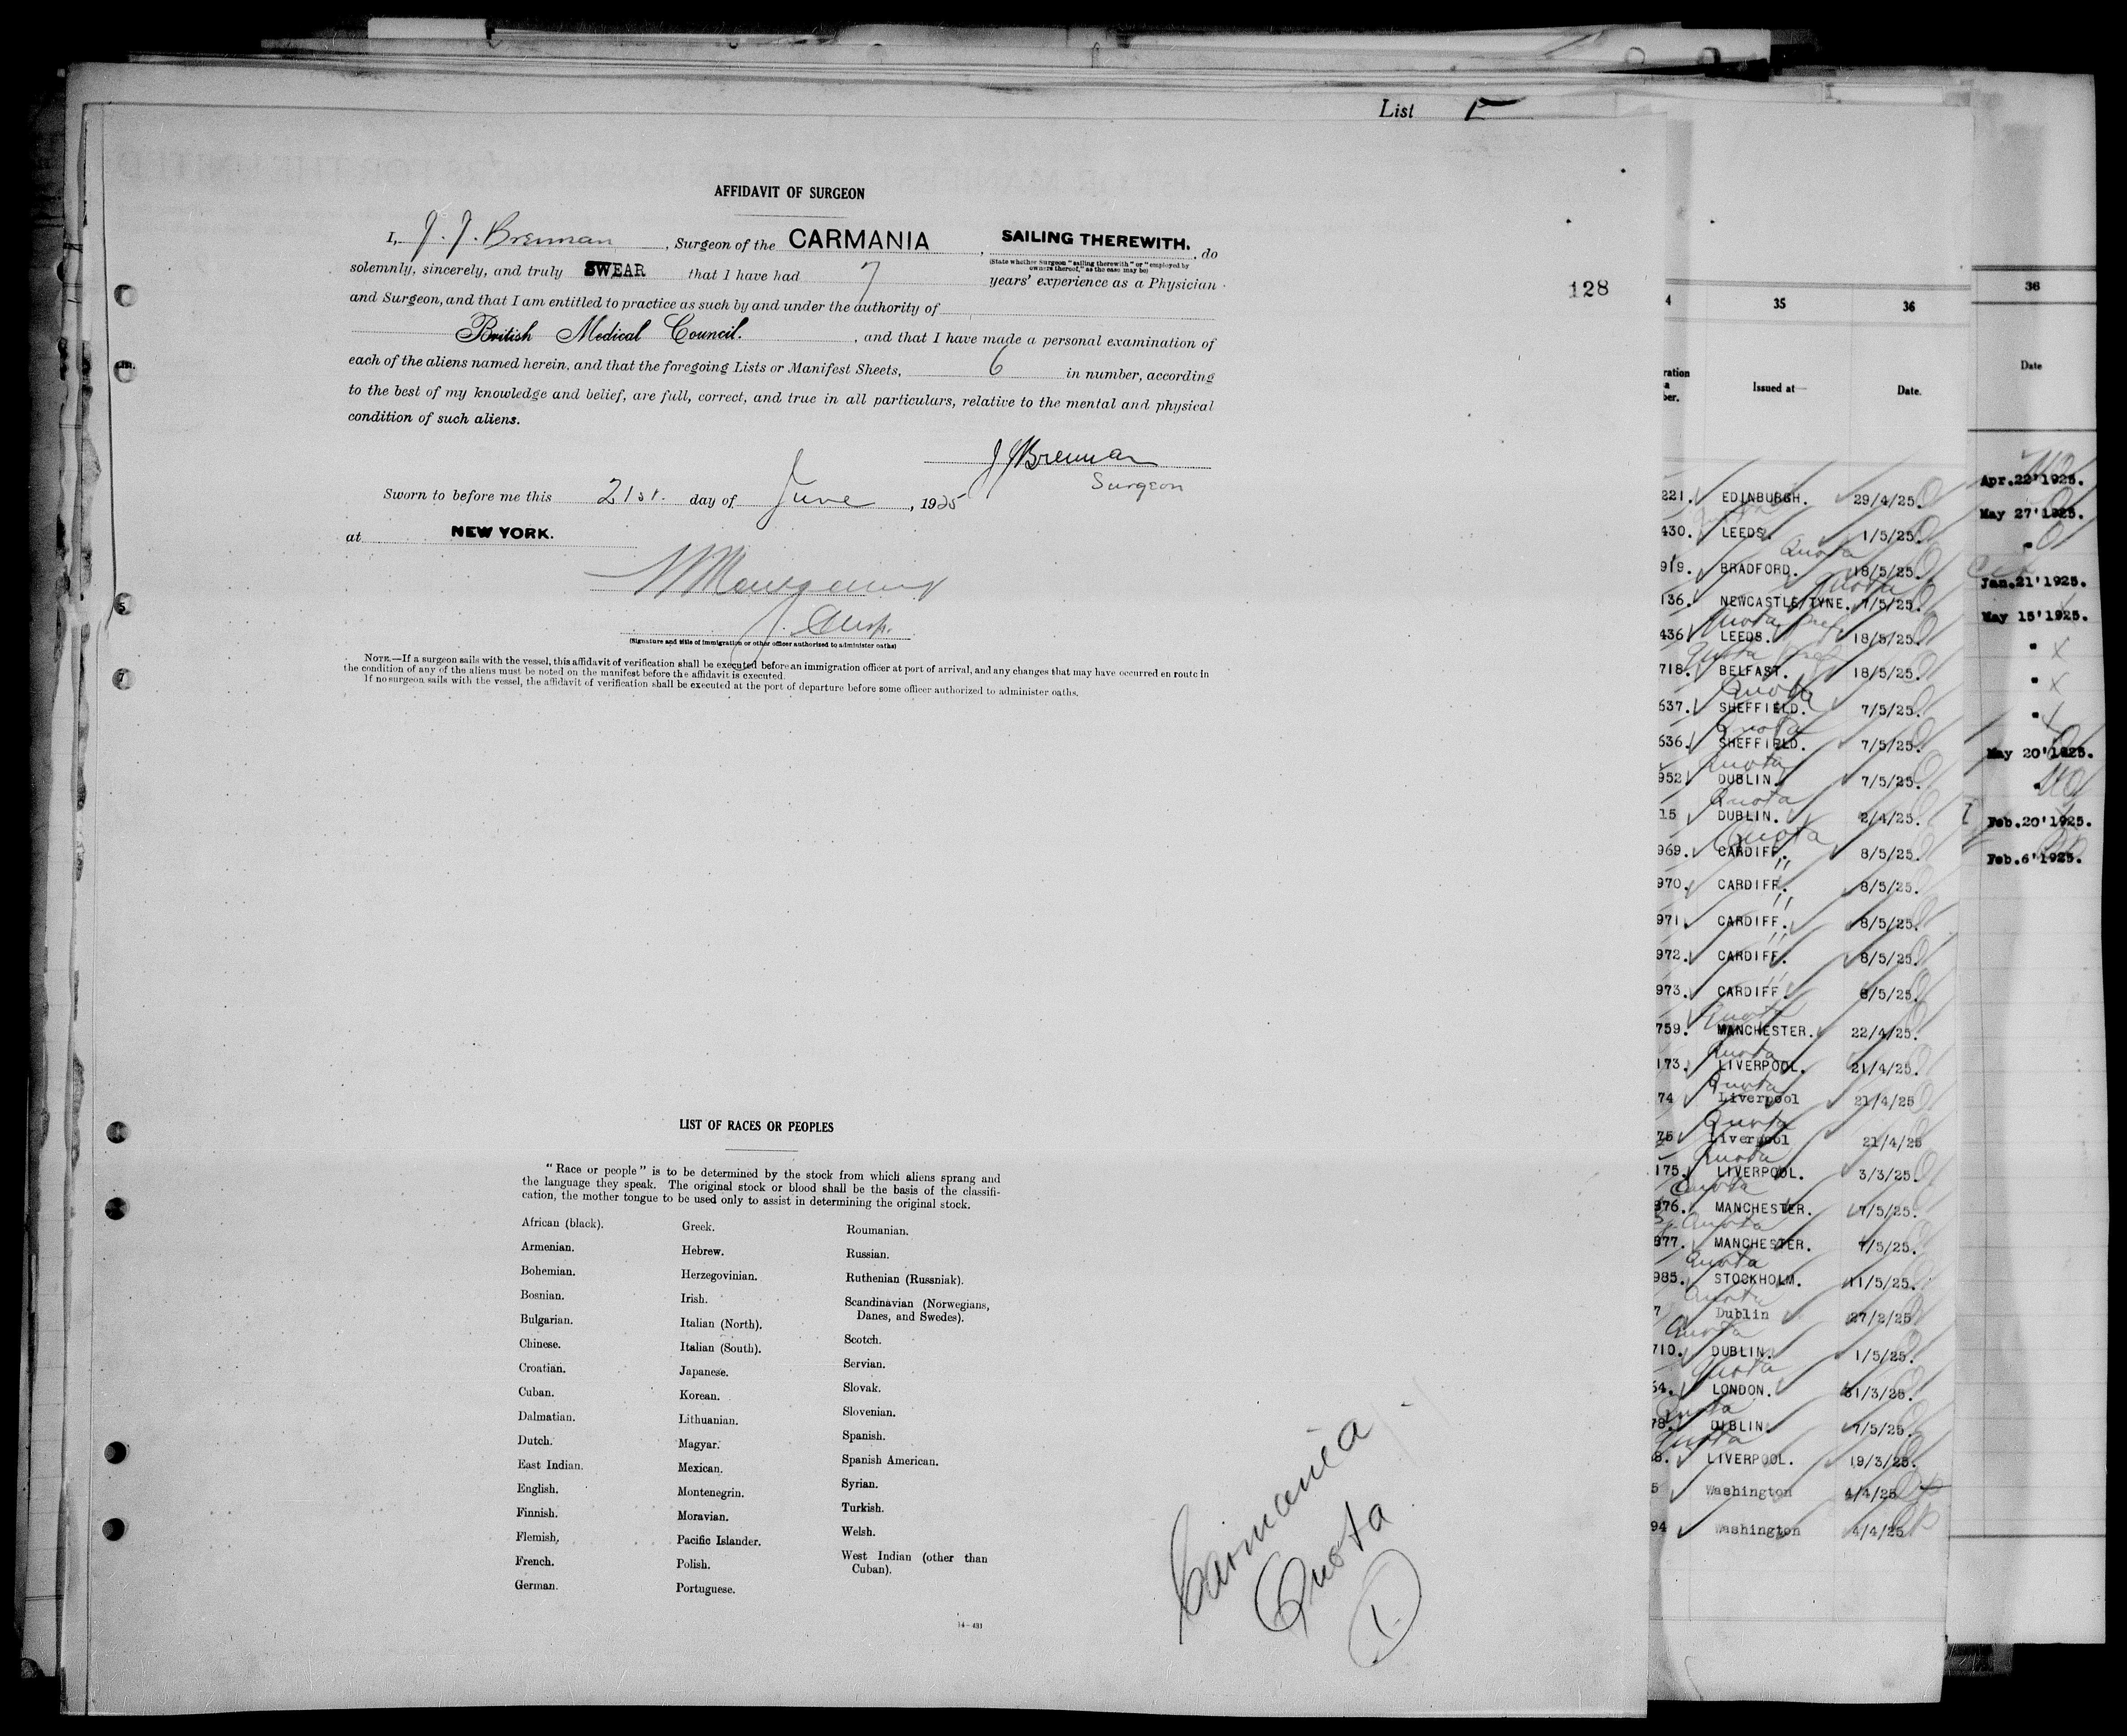 List
AFFIDAVIT OF SURGEON
I, J. J. Brennan, Surgeon of the CARMANIA, SAILING THEREWITH., do
(State whether Surgeon "sailing therewith" or "employed by
owners thereof," as the case may be)
solemnly, sincerely, and truly SWEAR that I have had 7 years' experience as a Physician
and Surgeon, and that I am entitled to practice as such by and under the authority of
British Medical Council., and that I have made a personal examination of
each of the aliens named herein, and that the foregoing Lists or Manifest Sheets, 6 in number, according
to the best of my knowledge and belief, are full, correct, and true in all particulars, relative to the mental and physical
condition of such aliens.
J J Brennan
Surgeon
Sworn to before me this 21st. day of June, 1925
at NEW YORK.
Insp.
(Signature and title of immigration or other officer authorized to administer oaths)
NOTE.—If a surgeon sails with the vessel, this affidavit of verification shall be executed before an immigration officer at port of arrival, and any changes that may have occurred en route in
the condition of any of the aliens must be noted on the manifest before the affidavit is executed.
If no surgeon sails with the vessel, the affidavit of verification shall be executed at the port of departure before some officer authorized to administer oaths.
128
LIST OF RACES OR PEOPLES
"Race or people" is to be determined by the stock from which aliens sprang and
the language they speak. The original stock or blood shall be the basis of the classifi-
cation, the mother tongue to be used only to assist in determining the original stock.
African (black).
Armenian.
Bohemian.
Bosnian.
Bulgarian.
Chinese.
Croatian.
Cuban.
Dalmatian.
Dutch.
East Indian.
English.
Finnish.
Flemish.
French.
German.
Greek.
Hebrew.
Herzegovinian.
Irish.
Italian (North).
Italian (South).
Japanese.
Korean.
Lithuanian.
Magyar.
Mexican.
Montenegrin.
Moravian.
Pacific Islander.
Polish.
Portuguese.
Roumanian.
Russian.
Ruthenian (Russniak).
Scandinavian (Norwegians,
Danes, and Swedes).
Scotch.
Servian.
Slovak.
Slovenian.
Spanish.
Spanish American.
Syrian.
Turkish.
Welsh.
West Indian (other than
Cuban).
14—431
Carmania
Quota
1
4 35 36
Issued at— Date.
221. EDINBURGH. 29/4/25.
430. LEEDS. 1/5/25.
Quota
919. BRADFORD. 18/5/25.
Quota
136. NEWCASTLE/TYNE. 7/5/25.
Quota
436 LEEDS. 18/5/25.
Quota
718. BELFAST. 18/5/25.
Quota
637. SHEFFIELD. 7/5/25.
Quota
636. SHEFFIELD. 7/5/25.
Quota
952 DUBLIN. 7/5/25.
Quota
15 DUBLIN. 2/4/25.
Quota
969. CARDIFF. 8/5/25.
970. CARDIFF. 8/5/25.
971 CARDIFF. 8/5/25.
972. CARDIFF. 8/5/25.
973. CARDIFF. 8/5/25.
Quota
759. MANCHESTER. 22/4/25.
Quota
173. LIVERPOOL. 21/4/25.
Quota
74 Liverpool 21/4/25
Quota
75 Liverpool 21/4/25
Quota
175. LIVERPOOL. 3/3/25.
Quota
376. MANCHESTER. 7/5/25.
Quota
377. MANCHESTER. 7/5/25.
Quota
985. STOCKHOLM. 11/5/25.
Quota
7 Dublin 27/2/25
Quota
710. DUBLIN. 1/5/25.
Quota
54. LONDON. 31/3/25.
Quota
78. DUBLIN. 7/5/25.
Quota
8. LIVERPOOL. 19/3/25.
5 Washington 4/4/25
94 Washington 4/4/25
36
Date
Apr.22'1925.
May 27'1925.
"
Jan.21'1925.
May 15'1925.
"
"
"
May 20'1925.
"
Feb.20'1925.
Feb.6'1925.